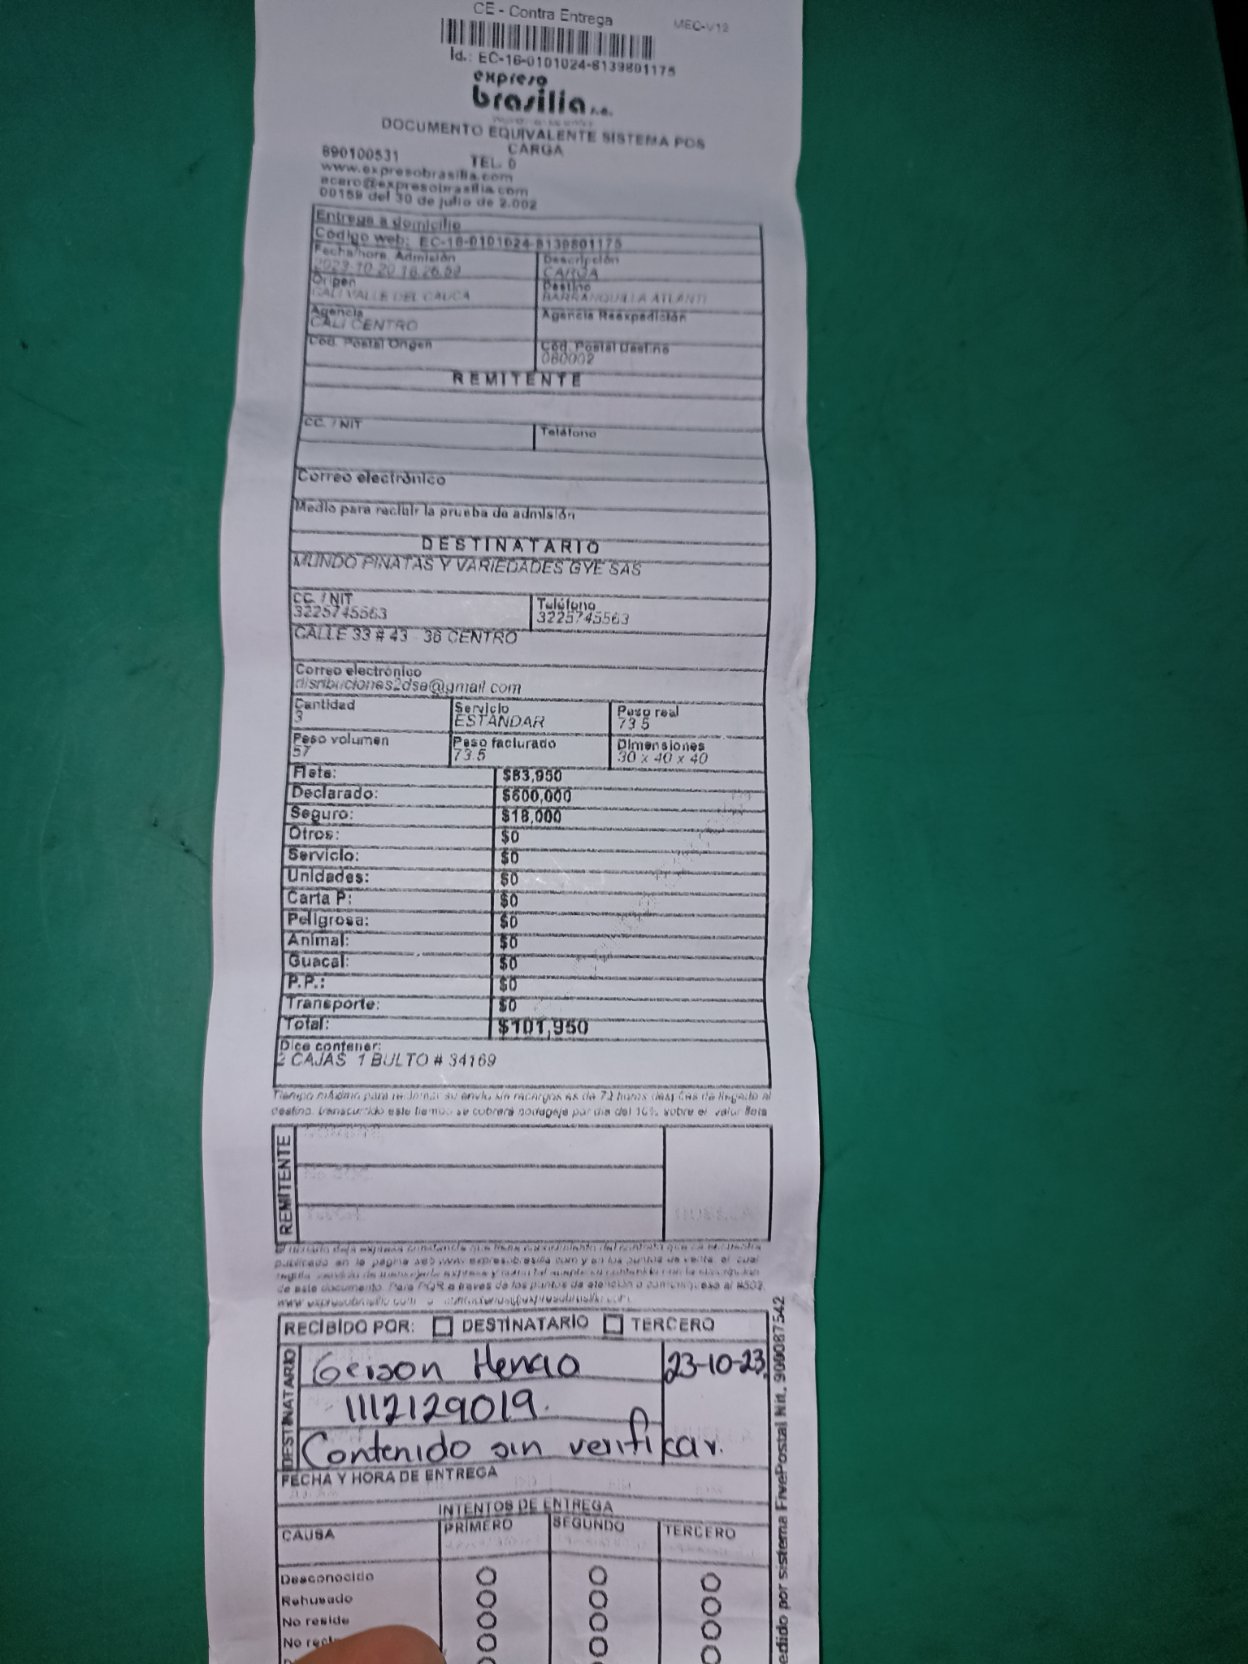 CE - Contra Entrega
MEC-V12
Id.: EC-16-0101024-8139801175
expreso
brasilia s.a.
DOCUMENTO EQUIVALENTE SISTEMA POS
CARGA
890100531 TEL. 0
www.expresobrasilia.com
acaro@expresobrasilia.com
00159 del 30 de julio de 2.002
Entrega a domicilio
Código web: EC-16-0101024-8139801175
Fecha/hora Admisión Descripción
2023-10-20 16:26:59 CARGA
Origen Destino
CALI VALLE DEL CAUCA BARRANQUILLA ATLANTI
Agencia Agencia Reexpedición
CALI CENTRO
Cod. Postal Origen Cód. Postal Destino
080002
REMITENTE
CC. / NIT Teléfono
Correo electrónico
Medio para recibir la prueba de admisión
DESTINATARIO
MUNDO PINATAS Y VARIEDADES GYE SAS
CC. / NIT Teléfono
3225745563 3225745563
CALLE 33 # 43 - 36 CENTRO
Correo electrónico
disribuciones2dsa@gmail.com
Cantidad Servicio Peso real
3 ESTÁNDAR 73.5
Peso volumen Peso facturado Dimensiones
57 73.5 30 x 40 x 40
Flete: $83,950
Declarado: $600,000
Seguro: $18,000
Otros: $0
Servicio: $0
Unidades: $0
Carta P: $0
Peligrosa: $0
Animal: $0
Guacal: $0
P.P.: $0
Transporte: $0
Total: $101,950
Dice contener:
2 CAJAS 1 BULTO # 34169
Tiempo máximo para reclamar su envío sin recargos es de 72 horas después de llegado al
destino, transcurrido este tiempo se cobrará bodegaje por día del 10% sobre el valor flete
REMITENTE
publicado en la página web www.expresobrasilia.com y en los puntos de venta, el cual
de este documento. Para PQR a través de los puntos de atención
RECIBIDO POR: DESTINATARIO TERCERO
DESTINATARIO
Gerson Henao 23-10-23
1112129019.
Contenido sin verificar.
FECHA Y HORA DE ENTREGA
INTENTOS DE ENTREGA
CAUSA PRIMERO SEGUNDO TERCERO
Desconocido
Rehusado
No reside
No
edido por sistema FivePostal Nit. 900087542